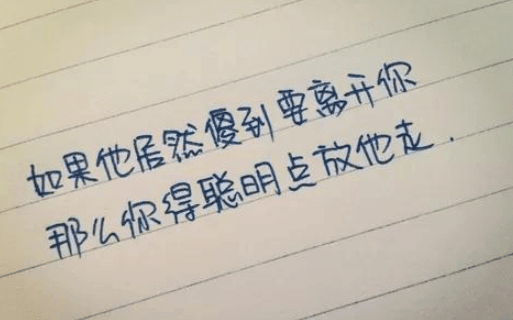 如果他居然傻到要离开你
那么你得聪明点放他走.